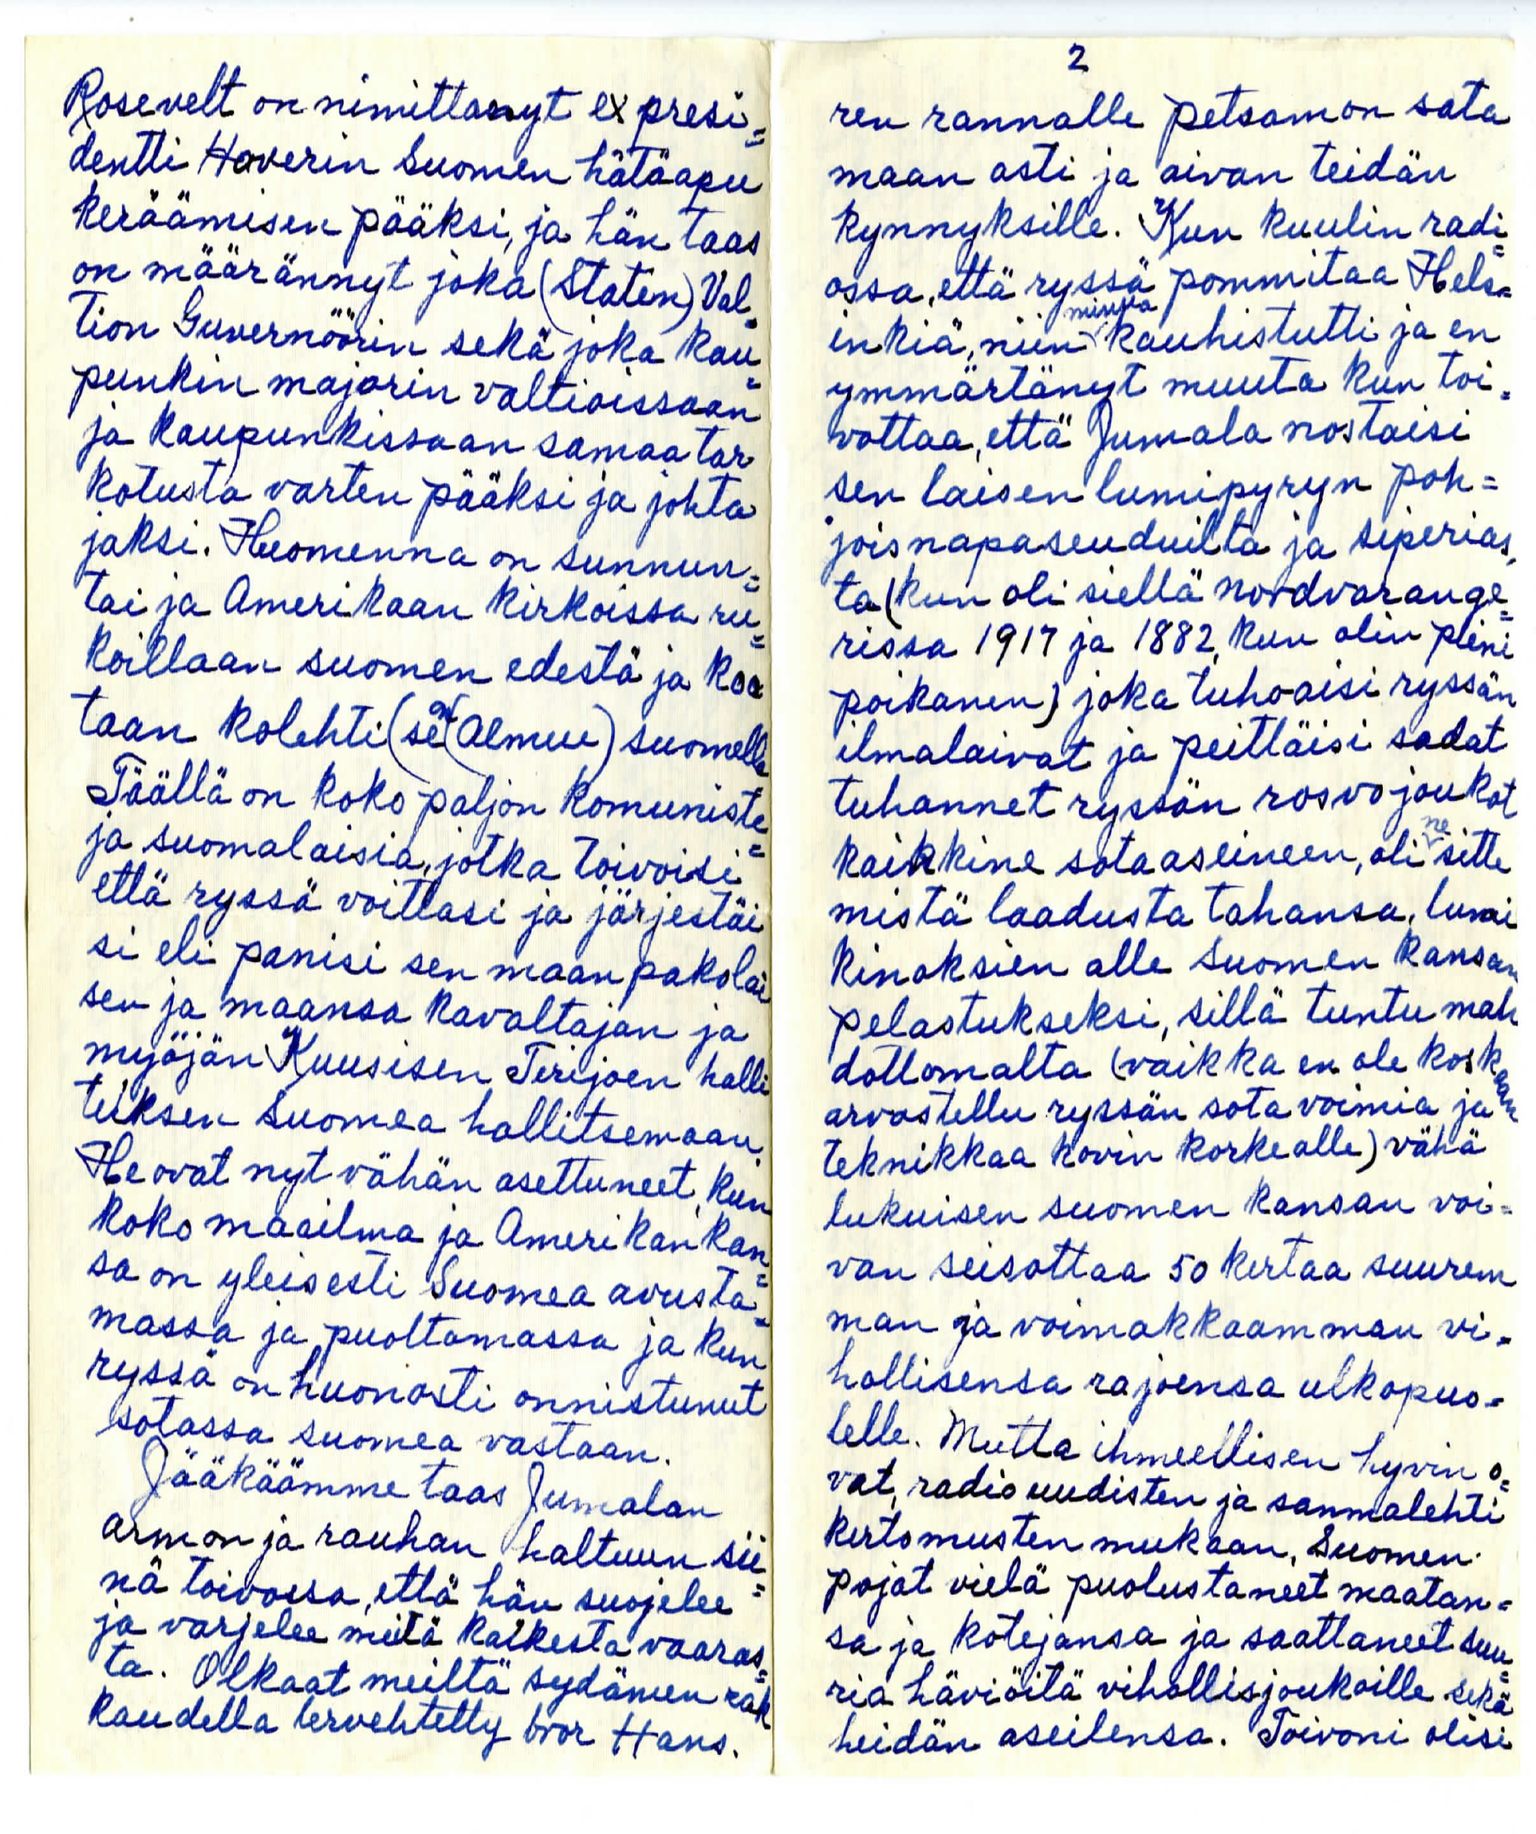 Rosevelt on nimittanyt ex presi=
dentti Hoverin Suomen hätäapu
keräämisen pääksi, ja hän taas
on määrännyt joka (Staten) Val=
tion Guvernöörin sekä joka kau=
punkin majorin valtioissaan
ja kaupunkissaan samaa tar
kotusta varten pääksi ja johta
jaksi. Huomenna on sunnun=
tai ja Amerikaan kirkoissa ru=
koillaan suomen edestä ja koo
taan kolehti (se on (Almue) suomella
Täällä on koko paljon komuniste=
ja suomalaisia, jotka toivoisi
että ryssä voittasi ja järjestäi
si eli panisi sen maan pakolai
sen ja maansa kavaltajan ja
myöjän Kuusisen Terijoen halli
tuksen Suomea hallitsemaan.
He ovat nyt vähän asettuneet, kun
koko maailma ja Amerikan kan=
sa on yleisesti Suomea avusta=
massa ja puoltamassa ja kun
ryssä on huonosti onnistunut
sotassa suomea vastaan.
Jääkäämme taas Jumalan
armon ja rauhan haltuun sii=
nä toivossa, että hän suojelee
ja varjelee meitä kaikesta vaaras=
ta. Olkaat meiltä sydämen rak
kaudella tervehtetty bror Hans.
2
ren rannalle petsamon sata
maan asti ja aivan teidän
kynnyksille. Kun kuulin radi=
ossa, että ryssä pommitaa Hels=
inkiä, niin minua kauhistutti ja en
ymmärtänyt muuta kun toi=
vottaa, että Jumala nostaisi
sen laisen lumipyryn poh=
joisnapaseuduilta ja siperias,
ta (kun oli siellä nordvarange=
rissa 1917 ja 1882, kun olin pieni
poikanen) joka tuhoaisi ryssän
ilmalaivat ja peittäisi sadat
tuhannet ryssän rosvojoukot
kaikkine sotaaseineen, oli ne sitte
mistä laadusta tahansa, lumi
kinoksien alle Suomen kansan
pelastukseksi, sillä tuntu mah
dottomalta (vaikka en ole koskaan
arvostellu ryssän sotavoimia ja
teknikkaa kovin korkealle) vähä
lukuisen suomen kansan voi=
van seisottaa 50 kertaa suurem
man ja voimakkaamman vi=
hollisensa rajoensa ulkopuo=
lelle. Mutta ihmeellisen hyvin o=
vat, radio uudisten ja sanmalehti
kertomusten mukaan, Suomen
pojat vielä puolustaneet maatan=
sa ja kotejansa ja saattaneet suu=
ria häviöitä vihollisjoukoille sekä
heidän aseilensa. Toivoni olisi